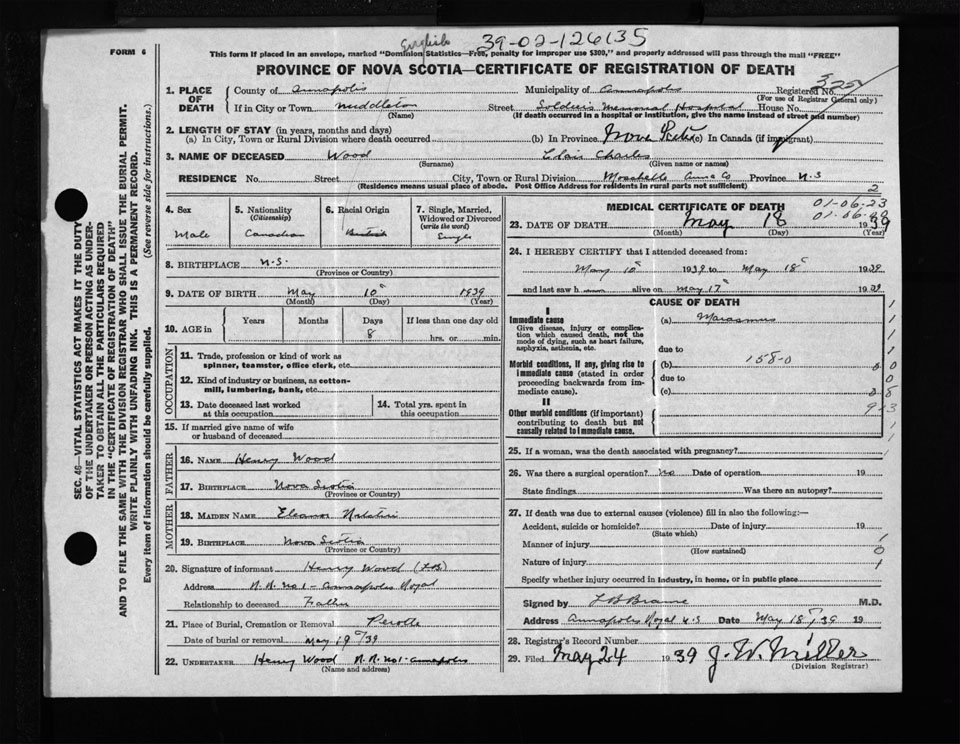 FORM 6
English
39-02-126135
This form if placed in an envelope, marked "Dominion Statistics—Free, penalty for improper use $300," and properly addressed will pass through the mail "FREE"
PROVINCE OF NOVA SCOTIA—CERTIFICATE OF REGISTRATION OF DEATH
1. PLACE OF DEATH
County of Annapolis Municipality of Annapolis Registered No. 325
(For use of Registrar General only)
If in City or Town Middleton Street Soldiers Memorial Hospital House No.
(Name) (If death occurred in a hospital or institution, give the name instead of street and number)
2. LENGTH OF STAY (in years, months and days)
(a) In City, Town or Rural Division where death occurred (b) In Province Nova Scotia (c) In Canada (if immigrant)
3. NAME OF DECEASED Wood Clair Charles
(Surname) (Given name or names)
RESIDENCE No. Street City, Town or Rural Division Moschelle Anna Co Province N.S
(Residence means usual place of abode. Post Office Address for residents in rural parts not sufficient)
2
4. Sex
Male
5. Nationality (Citizenship)
Canadian
6. Racial Origin
British
7. Single, Married, Widowed or Divorced (write the word)
Single
8. BIRTHPLACE N.S.
(Province or Country)
9. DATE OF BIRTH May 10 1939
(Month) (Day) (Year)
10. AGE in Years Months Days If less than one day old
8 hrs. or min.
OCCUPATION
11. Trade, profession or kind of work as
spinner, teamster, office clerk, etc.
12. Kind of industry or business, as cotton-
mill, lumbering, bank, etc.
13. Date deceased last worked
at this occupation
14. Total yrs. spent in
this occupation
15. If married give name of wife
or husband of deceased
FATHER
16. NAME Henry Wood
17. BIRTHPLACE Nova Scotia
(Province or Country)
MOTHER
18. MAIDEN NAME Eleanor
19. BIRTHPLACE Nova Scotia
(Province or Country)
20. Signature of informant Henry Wood
Address R.R. No 1 - Annapolis Royal
Relationship to deceased Father
21. Place of Burial, Cremation or Removal
Date of burial or removal May 19/39
22. UNDERTAKER Henry Wood R.R. No 1. Annapolis
(Name and address)
MEDICAL CERTIFICATE OF DEATH
01-06-23
01-06-
23. DATE OF DEATH May 18 1939
(Month) (Day) (Year)
24. I HEREBY CERTIFY that I attended deceased from:
May 10 1939 to May 18 1939
and last saw h alive on May 17 1939
CAUSE OF DEATH
I
Immediate cause
Give disease, injury or complica-
tion which caused death, not the
mode of dying, such as heart failure,
asphyxia, asthenia, etc.
(a) Marasmus
due to
Morbid conditions, if any, giving rise to
immediate cause (stated in order
proceeding backwards from im-
mediate cause).
(b) 158-0
due to
(c)
II
Other morbid conditions (if important)
contributing to death but not
causally related to immediate cause.
25. If a woman, was the death associated with pregnancy?
26. Was there a surgical operation? No Date of operation 19
State findings Was there an autopsy?
27. If death was due to external causes (violence) fill in also the following:—
Accident, suicide or homicide? Date of injury 19
(State which)
Manner of injury
(How sustained)
Nature of injury
Specify whether injury occurred in industry, in home, or in public place
1
0
1
Signed by M.D.
Address Annapolis Royal N.S Date May 18/39 19
28. Registrar's Record Number
29. Filed May 24 1939 J. W. Miller
(Division Registrar)
SEC. 46—VITAL STATISTICS ACT MAKES IT THE DUTY
OF THE UNDERTAKER OR PERSON ACTING AS UNDER-
TAKER TO OBTAIN ALL THE PARTICULARS REQUIRED
IN THE "CERTIFICATE OF REGISTRATION OF DEATH"
AND TO FILE THE SAME WITH THE DIVISION REGISTRAR WHO SHALL ISSUE THE BURIAL PERMIT.
WRITE PLAINLY WITH UNFADING INK. THIS IS A PERMANENT RECORD.
Every item of information should be carefully supplied. (See reverse side for instructions.)